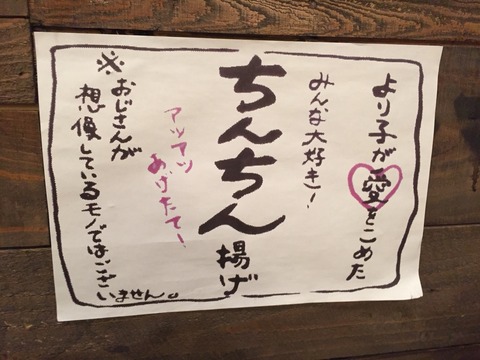 より子が愛をこめた
みんな大好き!
ちんちん揚げ
アツアツ
あげたて!
※おじさんが
想像しているモノではございません。